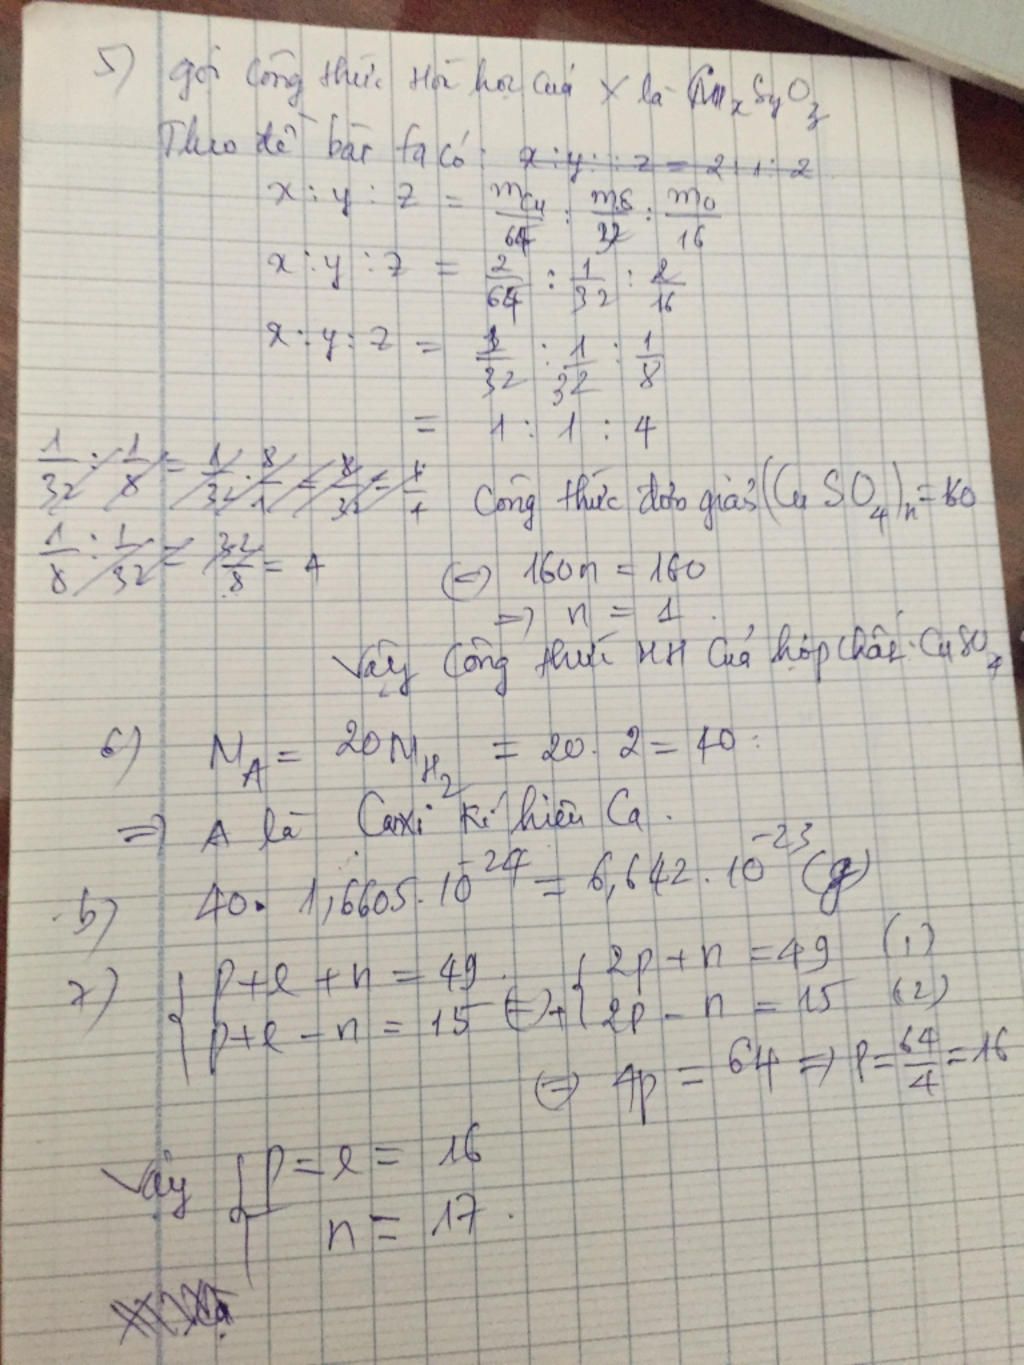 5) gọi công thức Hóa học của X là CuxSyOz
Theo đề bài ta có: x : y : z = 2 : 1 : 2
x : y : z = mCu/64 : mS/32 : mO/16
x : y : z = 2/64 : 1/32 : 2/16
x : y : z = 1/32 : 1/32 : 1/8
= 1 : 1 : 4
1/32 : 1/8 = 1/32 . 8/1 = 8/32 = 1/4
Công thức đơn giản (CuSO4)n = 160
1/8 : 1/32 = 32/8 = 4
(=) 160n = 160
=> n = 1.
Vậy Công thức HH của hợp chất: CuSO4
6) MA = 20MH2 = 20. 2 = 40.
=> A là Canxi kí hiệu Ca.
b) 40. 1,6605.10^-24 = 6,642.10^-23 (g)
7) { p+e+n = 49 (=) + { 2p+n = 49 (1)
{ p+e-n = 15 { 2p-n = 15 (2)
(=) 4p = 64 => P = 64/4 = 16
Vậy { p=e= 16
n = 17.